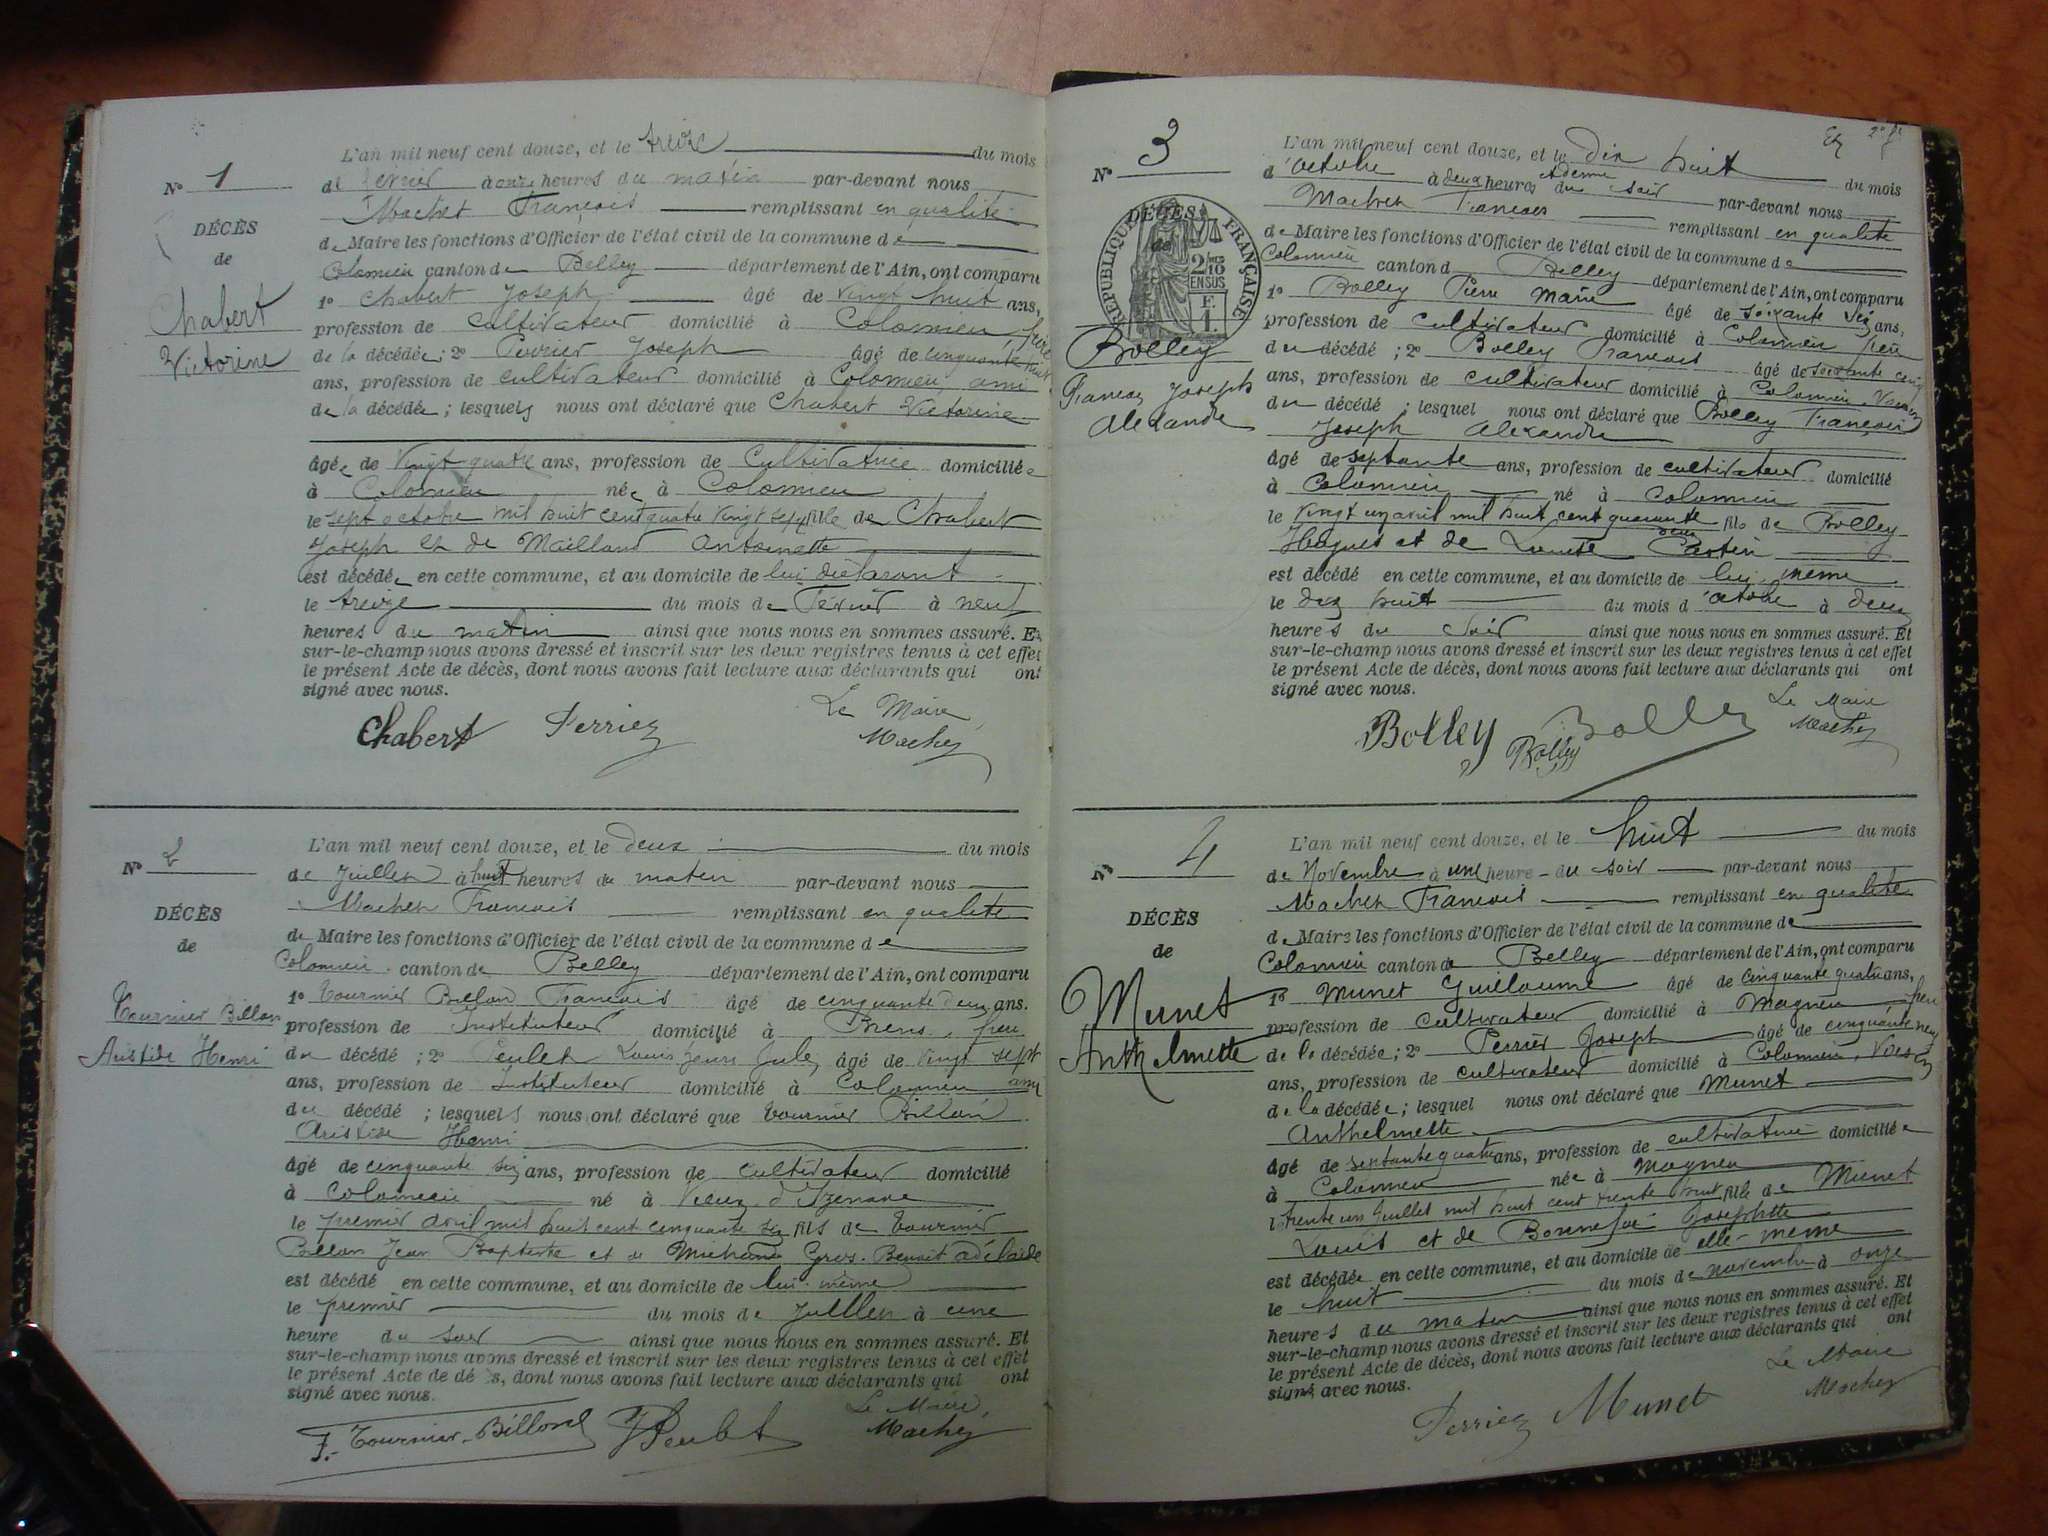 Nº 1
DÉCÈS
de
Chabert
Victorine
L'an mil neuf cent douze, et le treize du mois
de février à onze heures du matin par-devant nous
Machet François remplissant en qualité
de Maire les fonctions d'Officier de l'état civil de la commune de
Colomieu canton de Belley département de l'Ain, ont comparu
1º Chabert Joseph âgé de vingt huit ans,
profession de cultivateur domicilié à Colomieu, frère
de la décédée; 2º Perrier Joseph âgé de cinquante huit
ans, profession de cultivateur domicilié à Colomieu, ami
de la décédée; lesquels nous ont déclaré que Chabert Victorine
âgée de vingt quatre ans, profession de cultivatrice domiciliée
à Colomieu née à Colomieu
le sept octobre mil huit cent quatre vingt sept fille de Chabert
Joseph et de Mailland Antoinette
est décédée en cette commune, et au domicile de lui déclarant
le treize du mois de Février à neuf
heures du matin ainsi que nous nous en sommes assuré. Et
sur-le-champ nous avons dressé et inscrit sur les deux registres tenus à cet effet
le présent Acte de décès, dont nous avons fait lecture aux déclarants qui ont
signé avec nous.
Chabert Perrier Le Maire
Machet
Nº 2
DÉCÈS
de
Tournier Billon
Aristide Henri
L'an mil neuf cent douze, et le deux du mois
de Juillet à huit heures du matin par-devant nous
Machet Francois remplissant en qualité
de Maire les fonctions d'Officier de l'état civil de la commune de
Colomieu canton de Belley département de l'Ain, ont comparu
1º Tournier Billon Francois âgé de cinquante deux ans.
profession de Instituteur domicilié à Brens, frère
du décédé; 2º Peulet Louis Jules âgé de vingt sept
ans, profession de Instituteur domicilié à Colomieu ami
du décédé; lesquels nous ont déclaré que Tournier Billon
Aristide Henri
âgé de cinquante six ans, profession de cultivateur domicilié
à Colomieu né à Vieux d'Izenave
le premier avril mil huit cent cinquante six fils de Tournier
Billon Jean Baptiste et de Gros. Benoit adélaide
est décédé en cette commune, et au domicile de lui-même
le premier du mois de Juillet à une
heure du soir ainsi que nous nous en sommes assuré. Et
sur-le-champ nous avons dressé et inscrit sur les deux registres tenus à cet effet
le présent Acte de décès, dont nous avons fait lecture aux déclarants qui ont
signé avec nous.
F. Tournier-Billon Peulet Le Maire,
Machet
Nº 3
DÉCÈS
de
RÉPUBLIQUE FRANÇAISE
2/10
EN SUS
F.
1.
Bolley
Francois Joseph
Alexandre
2e ft
L'an mil neuf cent douze, et le dix huit du mois
d'octobre à deux heures du soir par-devant nous
Machet Francois remplissant en qualité
de Maire les fonctions d'Officier de l'état civil de la commune de
Colomieu canton d Belley département de l'Ain, ont comparu
1º Bolley Pierre Marie âgé de soixante six ans,
profession de cultivateur domicilié à Colomieu frère
du décédé; 2º Bolley Francois âgé de soixante cinq
ans, profession de cultivateur domicilié à Colomieu. Voisin
du décédé; lesquel nous ont déclaré que Bolley François
Joseph Alexandre
âgé de septante ans, profession de cultivateur domicilié
à Colomieu né à Colomieu
le vingt un avril mil huit cent quarante deux fils de Bolley
Hugues et de Castin
est décédé en cette commune, et au domicile de lui même
le dix huit du mois d'octobre à deux
heures du soir ainsi que nous nous en sommes assuré. Et
sur-le-champ nous avons dressé et inscrit sur les deux registres tenus à cet effet
le présent Acte de décès, dont nous avons fait lecture aux déclarants qui ont
signé avec nous.
Bolley Bolley Bolley Le Maire
Machet
Nº 4
DÉCÈS
de
Munet
Anthelmette
L'an mil neuf cent douze, et le huit du mois
de Novembre à une heure du soir par-devant nous
Machet Francois remplissant en qualité
de Maire les fonctions d'Officier de l'état civil de la commune de
Colomieu canton de Belley département de l'Ain, ont comparu
1º Munet Guillaume âgé de cinquante quatre ans,
profession de cultivateur domicilié à Magnieu frère
de la décédée; 2º Perrier Joseph âgé de cinquante neuf
ans, profession de cultivateur domicilié à Colomieu, Voisin
de la décédée; lesquel nous ont déclaré que Munet
Anthelmette
âgé de septante quatre ans, profession de cultivatrice domiciliée
à Colomieu née à Magnieu
le trente un Juillet mil huit cent trente huit fille de Munet
Louis et de Bonnefoi Josephtte
est décédée en cette commune, et au domicile de elle-même
le huit du mois de novembre à onze
heures du matin ainsi que nous nous en sommes assuré. Et
sur-le-champ nous avons dressé et inscrit sur les deux registres tenus à cet effet
le présent Acte de décès, dont nous avons fait lecture aux déclarants qui ont
signé avec nous.
Perrier Munet Le Maire
Machet